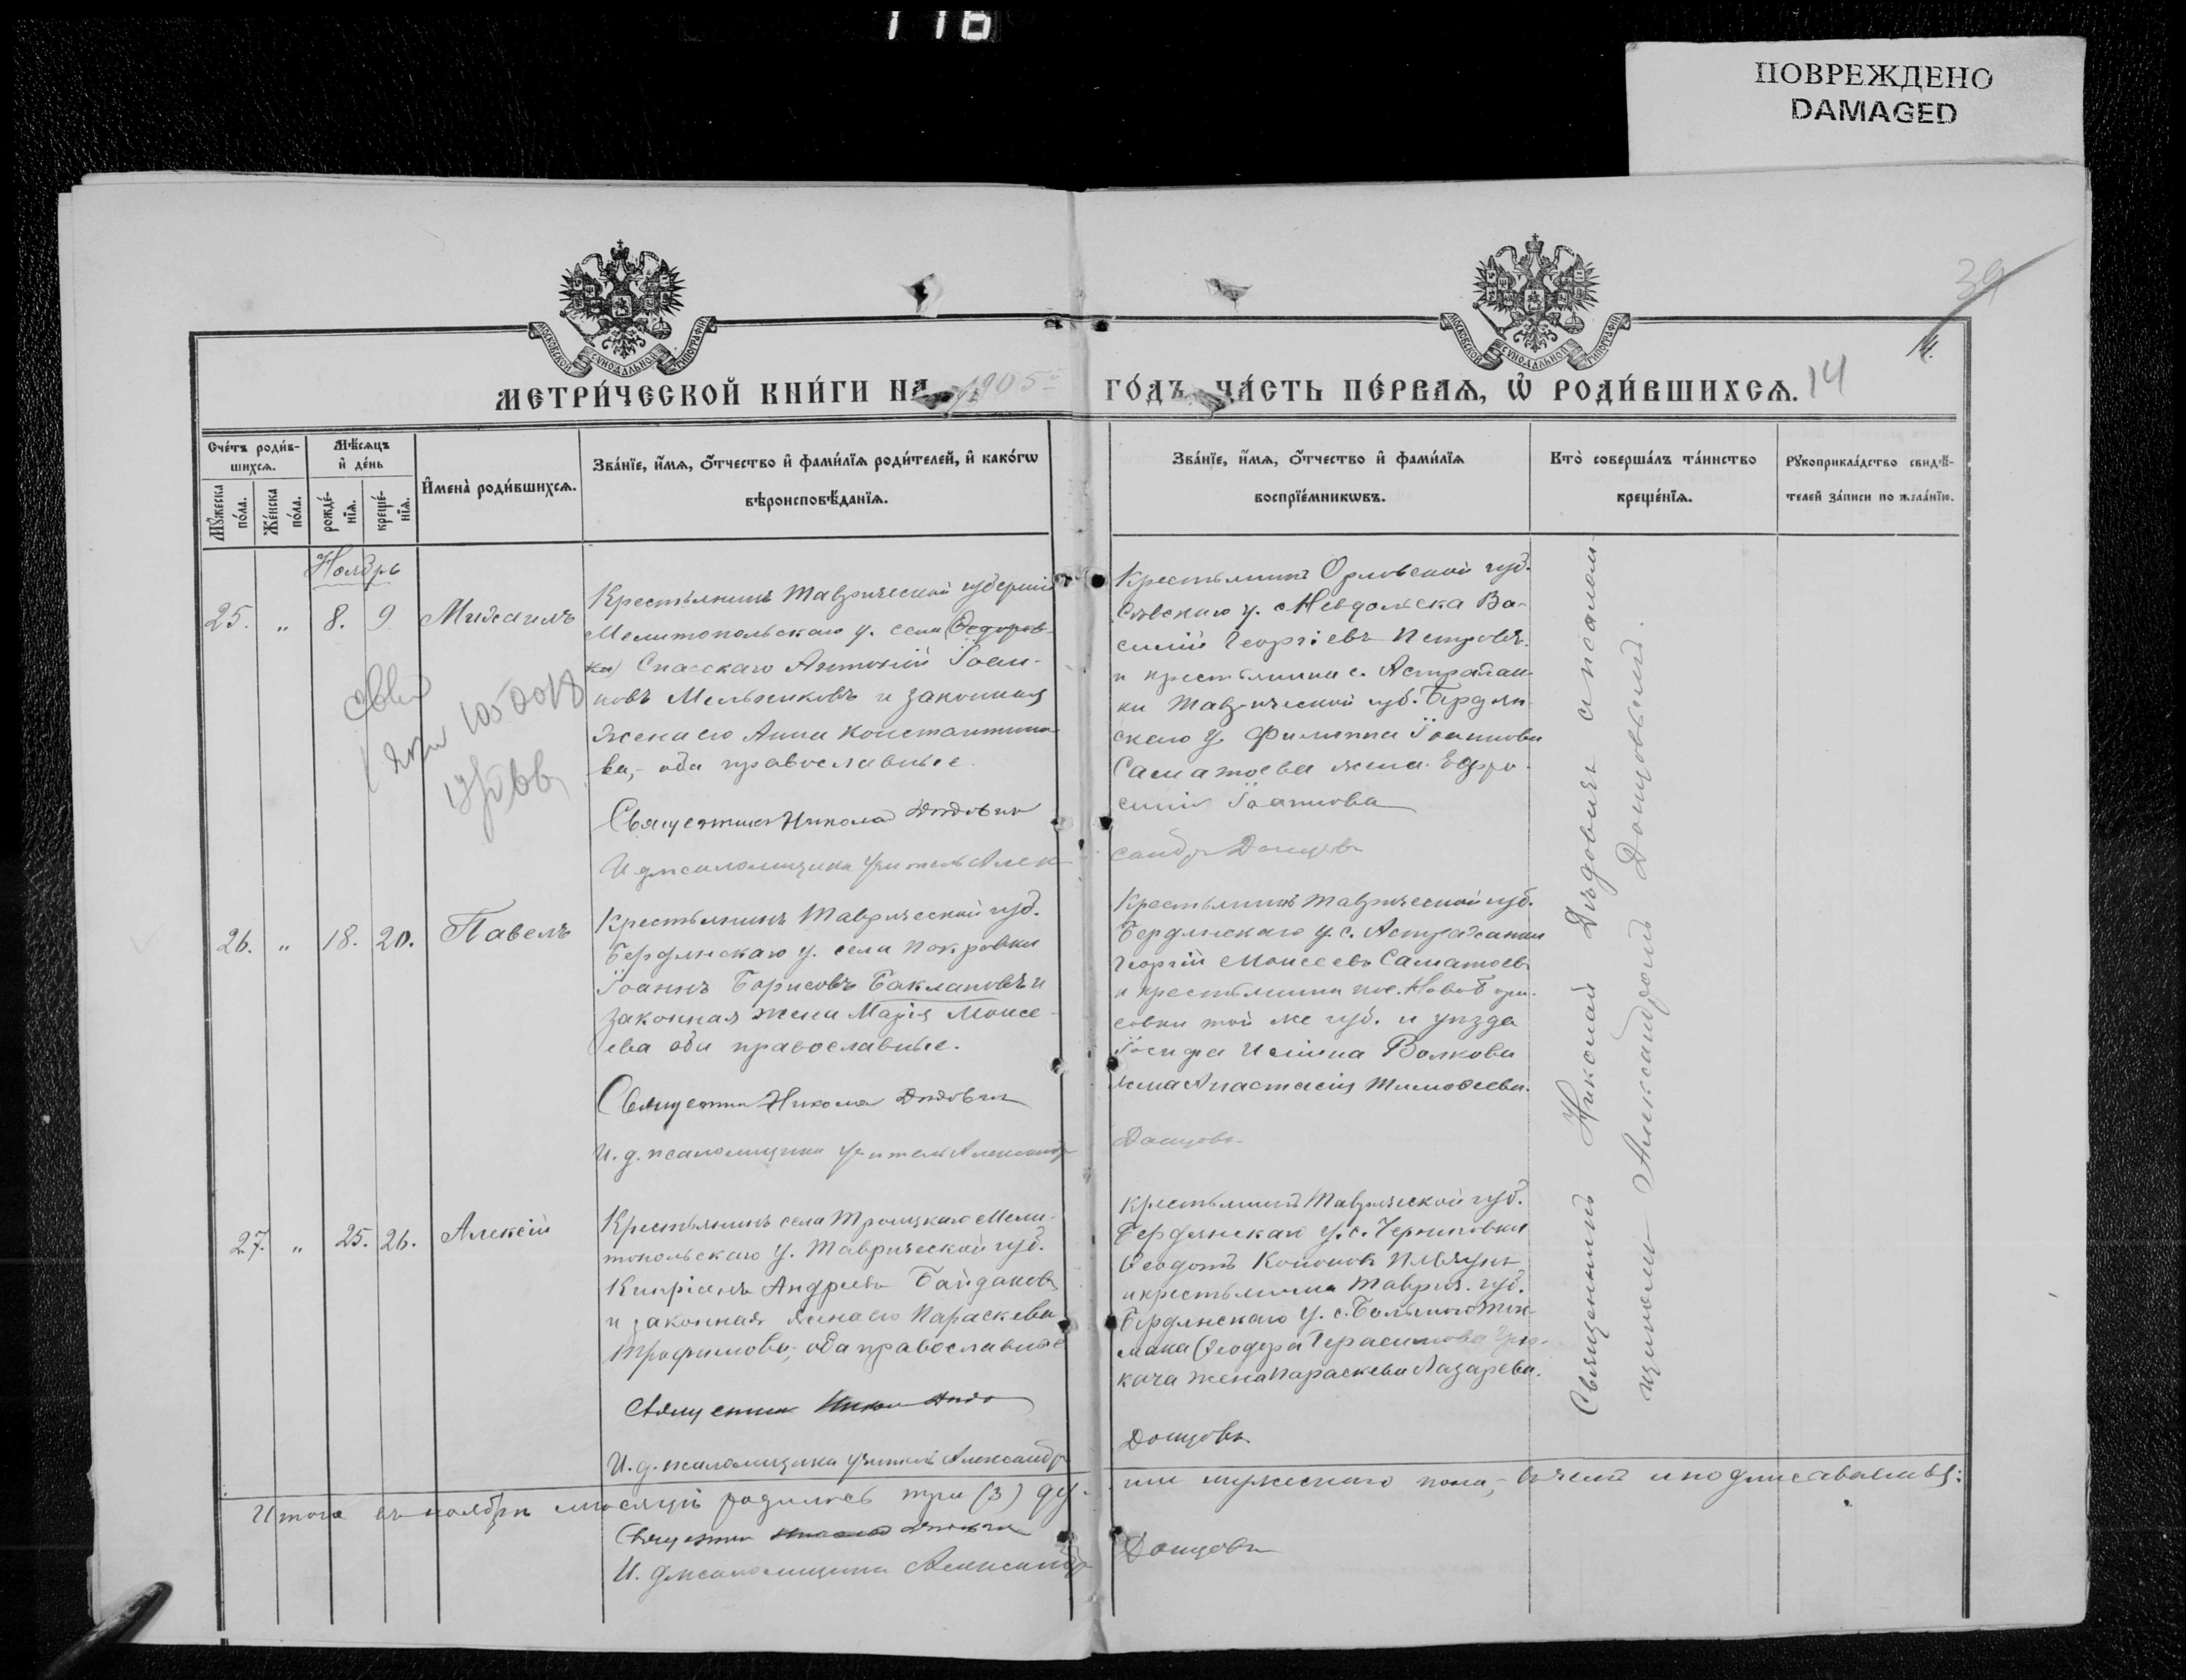 116
ПОВРЕЖДЕНО
DAMAGED
39
14.
МОСКОВСКОЙ СѴНОДАЛЬНОЙ ТИПОГРАФІИ
МОСКОВСКОЙ СѴНОДАЛЬНОЙ ТИПОГРАФІИ
МЕТРИ́ЧЕСКОЙ КНИ́ГИ НА 1905 ГО́ДЪ, ЧА́СТЬ ПЕ́РВАѦ, Ѽ РОДИ́ВШИХСѦ. 14
Сче́тъ роди́в-
шихсѧ.
Мꙋ́жеска по́ла.
Же́нска по́ла.
Мѣ́сѧцъ
и҆ де́нь
рожде́-
нїѧ.
креще́-
нїѧ.
И҆мена̀ роди́вшихсѧ.
Зва́нїе, и҆́мѧ, ѻ҆́тчество и҆ фами́лїѧ роди́телей, и҆ како́гѡ
вѣроисповѣ́данїѧ.
Зва́нїе, и҆́мѧ, ѻ҆́тчество и҆ фами́лїѧ
воспрїе́мникѡвъ.
Кто̀ соверша́лъ та́инство
креще́нїѧ.
Рꙋкоприкла́дство свидѣ́-
телей за́писи по жела́нїю.
Ноябрь
25. " 8. 9 Михаилъ
Крестьянинъ Таврической губерніи
Мелитопольскаго у. села Ѳедоров-
ки Спасскаго Антоній Іоан-
новъ Мельниковъ и законная
жена его Анна Константино-
ва, - оба православные.
Священникъ Николай Дѣдовичъ
И. д. псаломщика учитель Алек-
Крестьянинъ Орловской губ.
Сѣвскаго у. с. Невдольска Ва-
силій Георгіевъ Петровъ
и крестьянина с. Астрахан-
ки Таврической губ. Бердян-
скаго у. Филиппа Іоаннова
Саматоева жена Ефро-
синія Іоаннова
сандръ Донцовъ
26. " 18. 20. Павелъ
Крестьянинъ Таврической губ.
Бердянскаго у. села Покровки
Іоаннъ Борисовъ Баклановъ и
законная жена Марія Моисе-
ева оба православные.
Священникъ Николай Дѣдовичъ
И. д. псаломщика учитель Александръ
Крестьянинъ Таврической губ.
Бердянскаго у. с. Астраханки
Георгій Моисеевъ Саматоевъ
и крестьянина пос. Новобори-
совки той же губ. и уѣзда
Іосифа Волкова
жена Анастасія Тимоѳеева.
Донцовъ
27. " 25. 26. Алексій
Крестьянинъ села Троицкаго Мели-
топольскаго у. Таврической губ.
Кипріанъ Андреевъ Байдаковъ
и законная жена его Параскева
Трофимова, оба православные
Священникъ
И. д. псаломщика учитель Александръ
Крестьянинъ Таврической губ.
Бердянскаго у. с. Черниговки
Ѳеодотъ Кононовъ
и крестьянина Таврич. губ.
Бердянскаго у. с. Большого Ток-
мака Ѳеодора Герасимова
жена Параскева Лазарева.
Донцовъ
Священникъ Николай Дѣдовичъ и псалом-
щикомъ Александромъ Донцовымъ.
Итого въ ноябрѣ мѣсяцѣ родилось три (3) ду-
ши мужескаго пола, въ чемъ и подписываемся:
Священникъ Николай Дѣдовичъ
И. д. псаломщика Александръ
Донцовъ